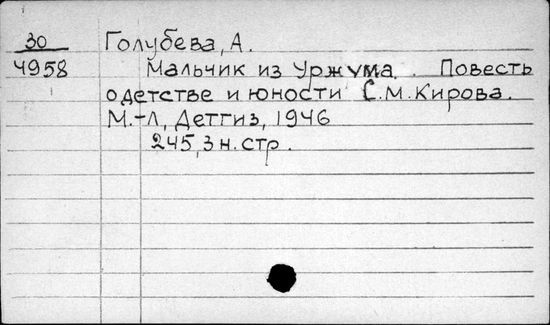 30 Голубева, А.
4958 Мальчик из Уржума. Повесть
о детстве и юности С.М. Кирова.
М.-Л, Детгиз, 1946
245, 3 н. стр.